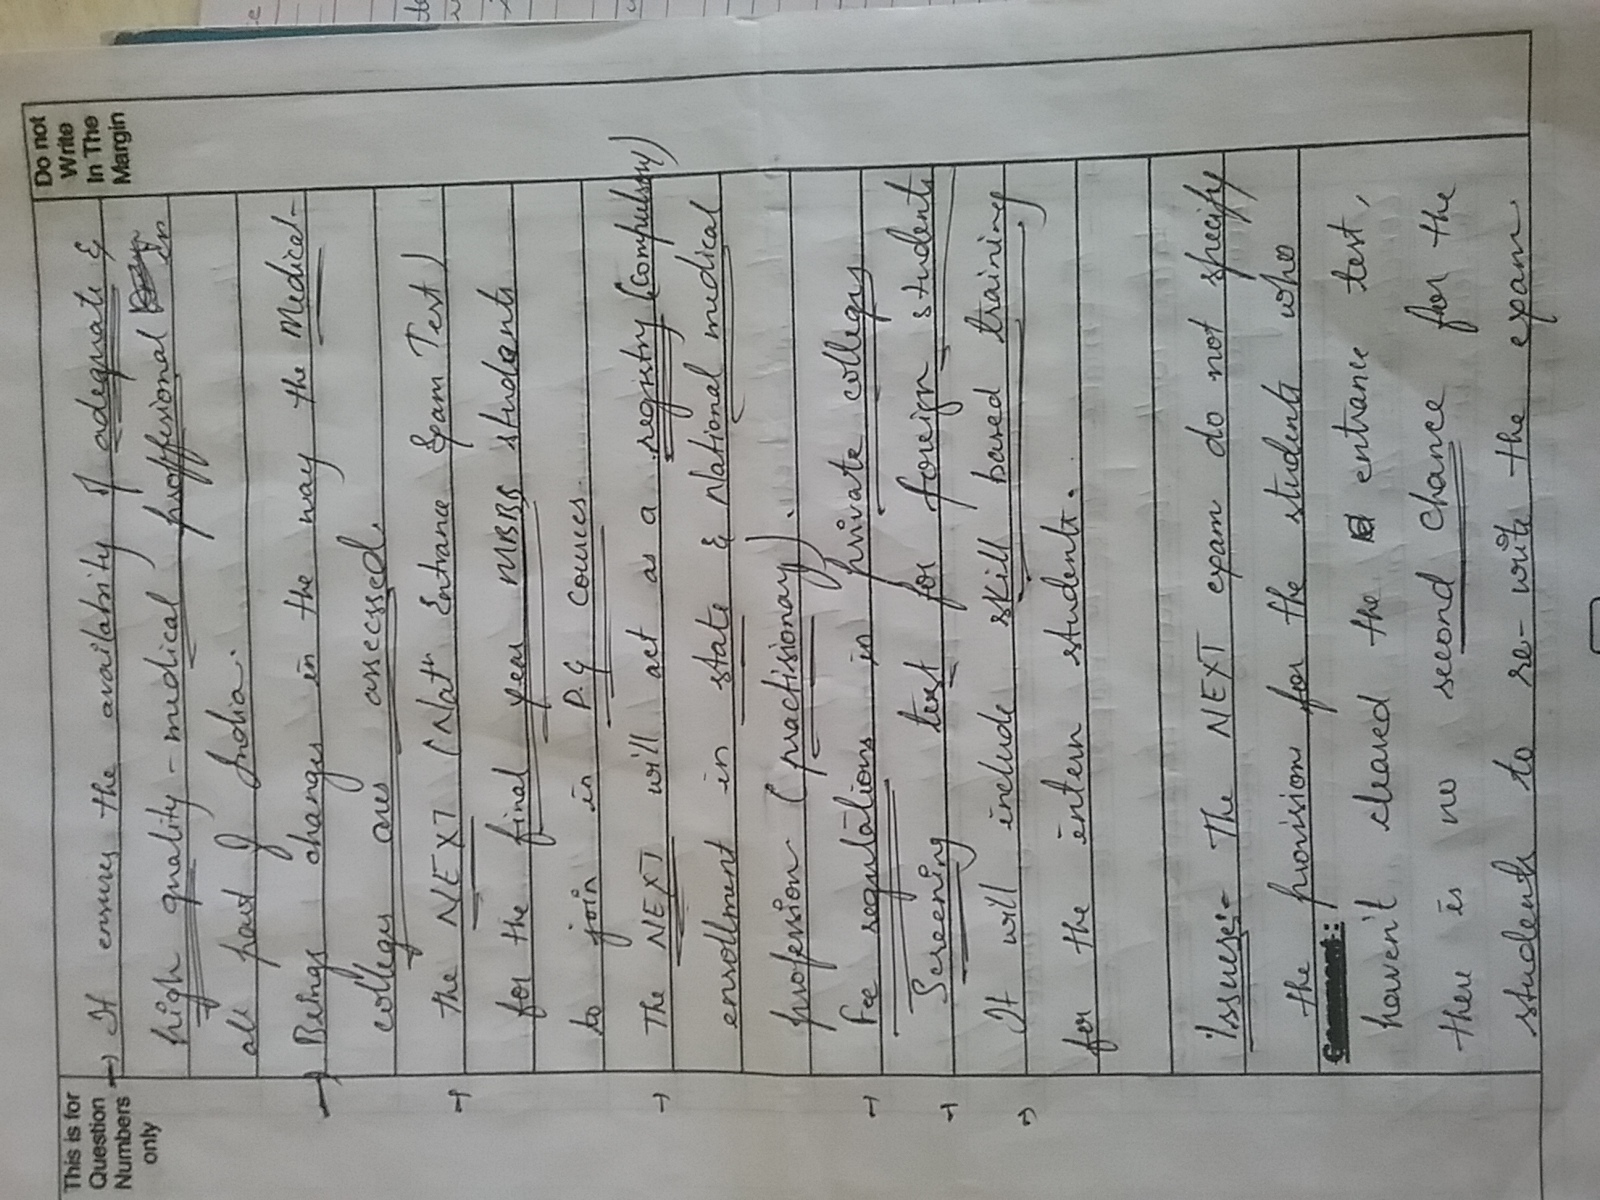 This is for
Question
Numbers
only
Do not
Write
In The
Margin
→ It ensures the availability of adequate &
high quality - medical proffessional in
all part of India.
→ Brings changes in the way the Medical-
colleges are assecssed.
→ the NEXT (Natn Entrance Exam Test)
for the final year MBBS students
to join in P.G cources.
→ The NEXT will act as a registry (compulsory)
enrollment in state & National medical
profession (practisionary).
→ Fee regulations in private colleges
→ Screening test for foreign students
→ It will include skill based training
for the intern students.
Issues:- The NEXT exam do not specify
the provision for the students who
haven't cleared the entrance test,
there is no second chance for the
students to re-write the exam